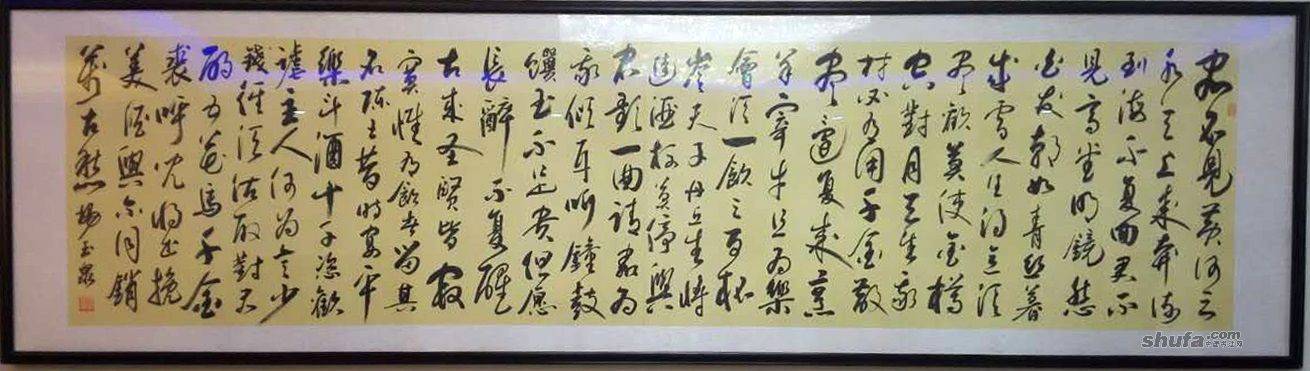 君不見黃河之
水天上來奔流
到海不復回君不
見高堂明鏡悲
白髮朝如青絲暮
成雪人生得意須
盡歡莫使金樽
空對月天生我
材必有用千金散
盡還復來烹
羊宰牛且為樂
會須一飲三百杯
岑夫子丹丘生將
進酒杯莫停與
君歌一曲請君為
我傾耳聽鐘鼓
饌玉不足貴但願
長醉不復醒
古來聖賢皆寂
寞惟有飲者留其
名陳王昔時宴平
樂斗酒十千恣歡
謔主人何為言少
錢徑須沽取對君
酌五花馬千金
裘呼兒將出換
美酒與爾同銷
萬古愁 楊玉泉
shufa.com